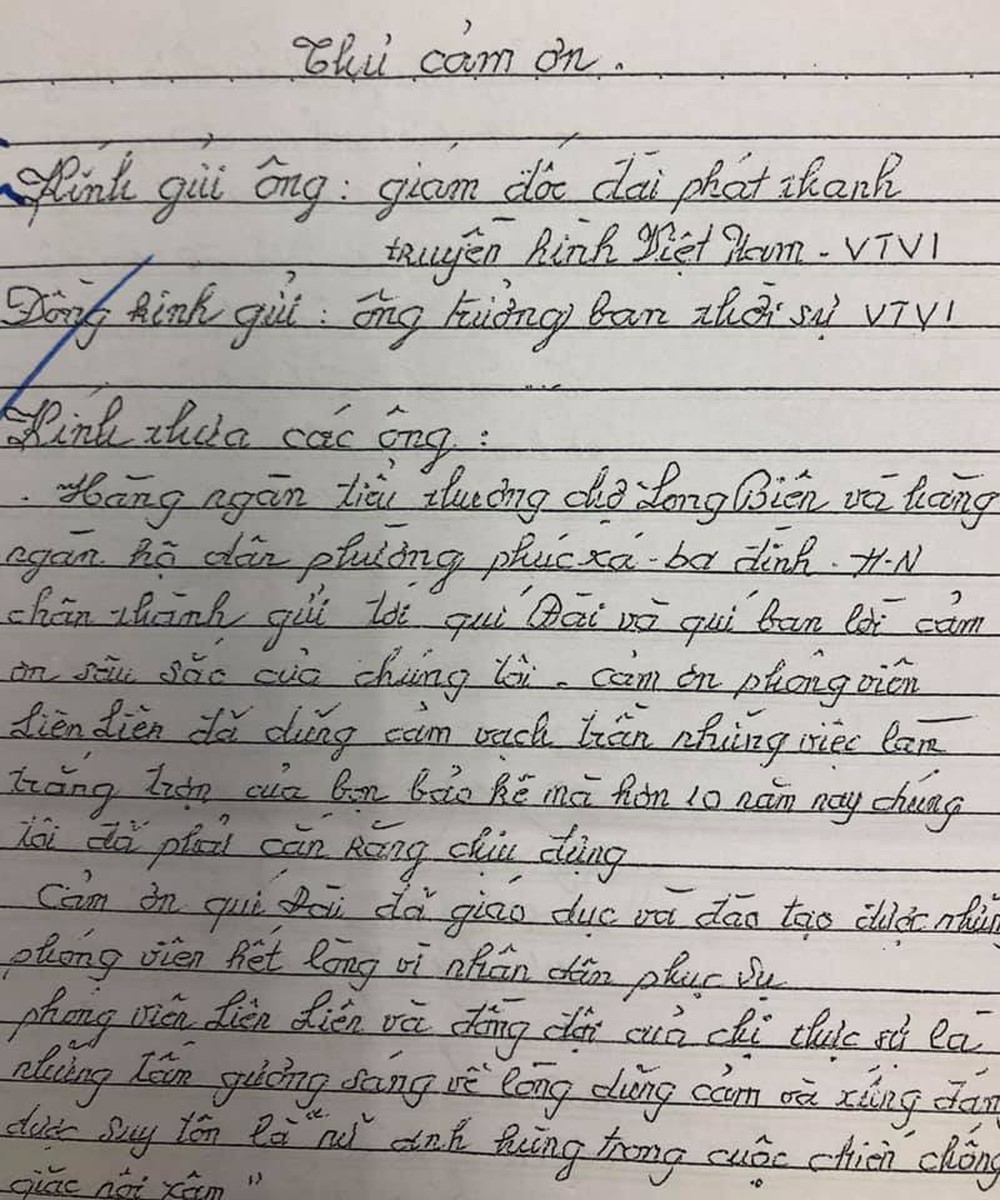 Thư cảm ơn.
Kính gửi ông: giám đốc đài phát thanh
truyền hình Việt Nam - VTV1
Đồng kính gửi: ông trưởng ban thời sự VTV1
Kính thưa các ông:
. Hàng ngàn tiểu thương chợ Long Biên và hàng
ngàn hộ dân phường phúc xá - ba đình. H-N
chân thành gửi tới quí Đài và quí ban lời cảm
ơn sâu sắc của chúng tôi. cảm ơn phóng viên
Liên Liên đã dũng cảm vạch trần những việc làm
trắng trợn của bọn bảo kê mà hơn 10 năm nay chúng
tôi đã phải cắn răng chịu đựng
Cảm ơn quí Đài đã giáo dục và đào tạo được những
phóng viên hết lòng vì nhân dân phục vụ
phóng viên Liên Liên và đồng đội của chị thực sự là
những tấm gương sáng về lòng dũng cảm và xứng đáng
được suy tôn là "nữ anh hùng trong cuộc chiến chống
giặc nội xâm"